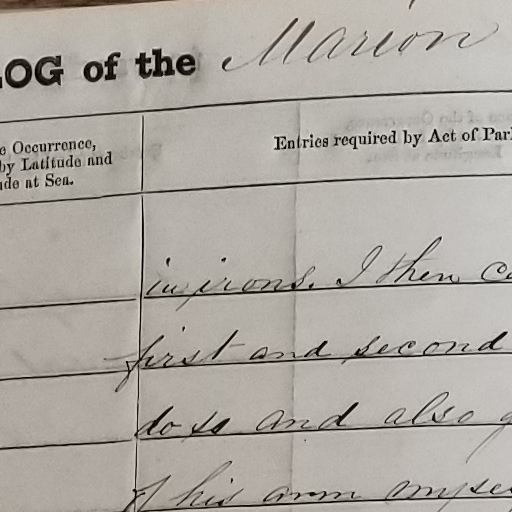 LOG of the Marion
e Occurrence,
by Latitude and
ude at Sea.
Entries required by Act of Par
in irons. I then c
first and second
do so and also g
of his arm myse